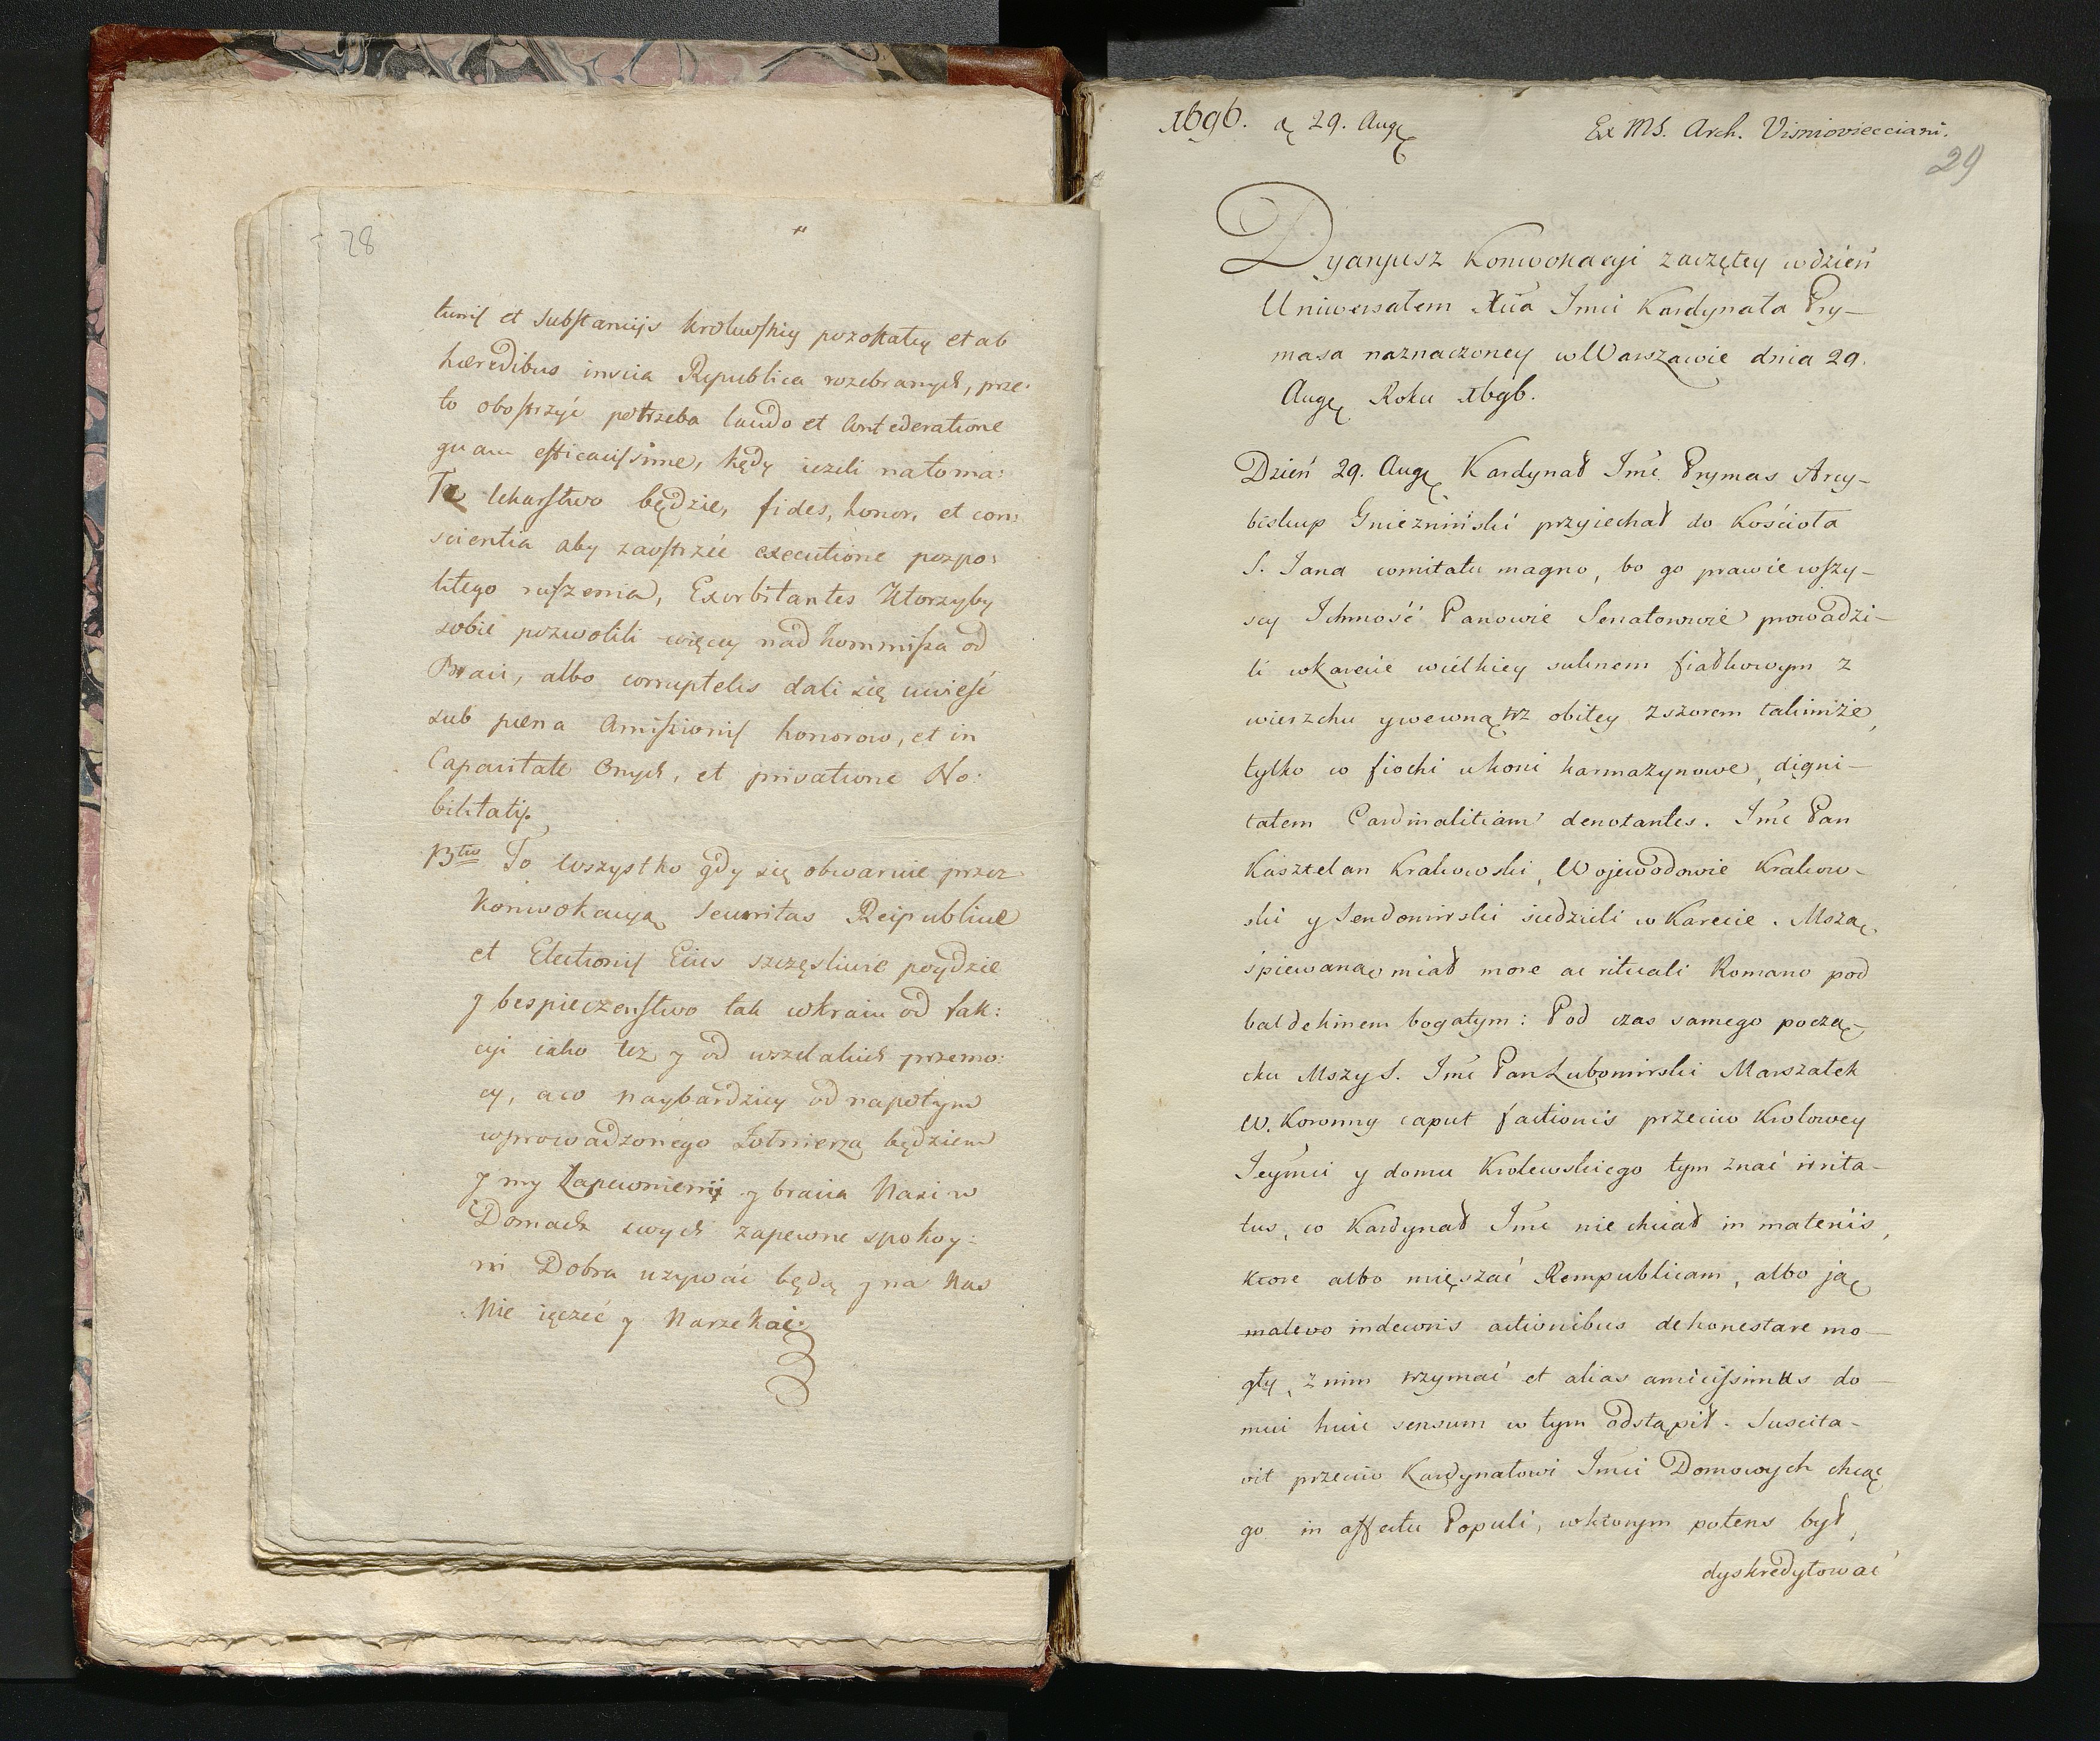 28
tunis et Substancijs krolewskiy pozostałey et ab
hæredibus inscia Republica rozebranych, prze:
to obostrzyć potrzeba laudo et Confederatione
quam efficacissime, kędy ieżeli na to ma:
Te lekarstwo będzie, fides, honor, et con:
scientia aby zaostrzéć executione pospo:
litego ruszenia, Exorbitantes Ktorzyby
sobie pozwolili więcey nad kommissa od
Braci, albo corruptelis dali się uwieść
sub pæna Amissionis honorow, et in
Capacitate Onych, et privatione No:
bilitatis.
13tio To Wszystko gdy się obwaruie przez
Konwokacyą Securitas Reipublicæ
et Electionis Eius szczęsliwie poydzie
y bespieczenstwo tak w kraiu od fak:
cyi iako tez y od wszelakich przemo:
cy, a co naybardziey od napotym
wprowadzonego Zołnierza będziem
y my Zapewnieni y bracia Nasi w
Domach swych zapewne spokoy:
ni Dobra uzywać będą y na Nas
Nie ięczéć y Narzekać.
1696. d 29. Aug
Ex MS. Arch. Visnioviecciani.
29
Dyaryusz Konwokacyi zaczętey w dzień
Uniwersałem Xcia Imci Kardynała Pry-
masa naznaczoney w Warszawie dnia 29.
Aug Roku 1696.
Dzień 29. Aug Kardynał Imc Prymas Arcy-
biskup Gniezniński przyiechał do Kościoła
S. Jana comitatu magno, bo go prawie wszy-
scy Ichmość Panowie Senatorowie prowadzi-
li w karecie wielkiey suknem fiałkowym z
wierzchu y wewnątrz obitey z szorem takimże,
tylko w fiochi u koni karmazynowe, digni-
tatem Cardinalitiam denotantes. Imc Pan
Kasztelan Krakowski, Wojewodowie Krakow-
ski y Sendomirski siedzieli w Karecie. Mszą
śpiewaną miał more ac rituali Romano pod
baldekinem bogatym: Pod czas samego począ-
tku Mszy S. Imc Pan Lubomirski Marszałek
W. Koronny caput factionis przeciw Krolowey
Jeymci y domu Krolewskiego tym znać irrita-
tus, co Kardynał Imc nie chciał in materiis,
ktore albo mięszać Rempublicam, albo ją
malevo indecoris actionibus dehonestare mo-
gły, z nim trzymać et alias amicissimus do-
mui huic sensum w tym odstąpił. Suscita-
vit przeciw Kardynałowi Imci Domowych chcąc
go in affectu Populi, w ktorym potens był,
dyskredytować